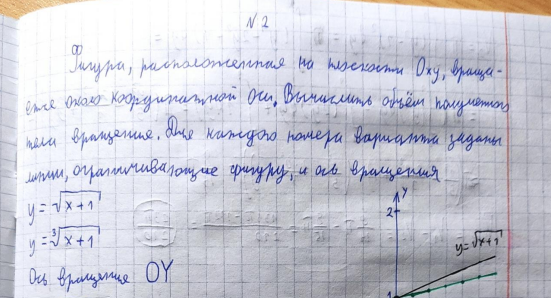 № 2
Фигура, расположенная на плоскости Oxy, враща-
ется около координатной оси. Вычислить объём полученного
тела вращения. Для каждого номера варианта заданы
линии, ограничивающие фигуру, и ось вращения
y = √x+1
y = ∛x+1
Ось вращения OY
y
2
y = √x+1
1